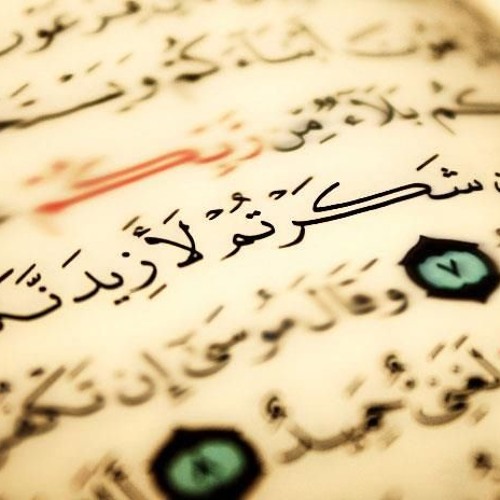 فِرْعَوْنَ
أَبْنَاءَكُمْ وَيَسْتَحْ
كُم بَلَاءٌ مِّن رَّبِّكُ
شَكَرْتُمْ لَأَزِيدَنَّكُ
٧ وَقَالَ مُوسَىٰ إِن تَكْفُ
لَغَنِيٌّ حَمِيدٌ ٨ أَلَ